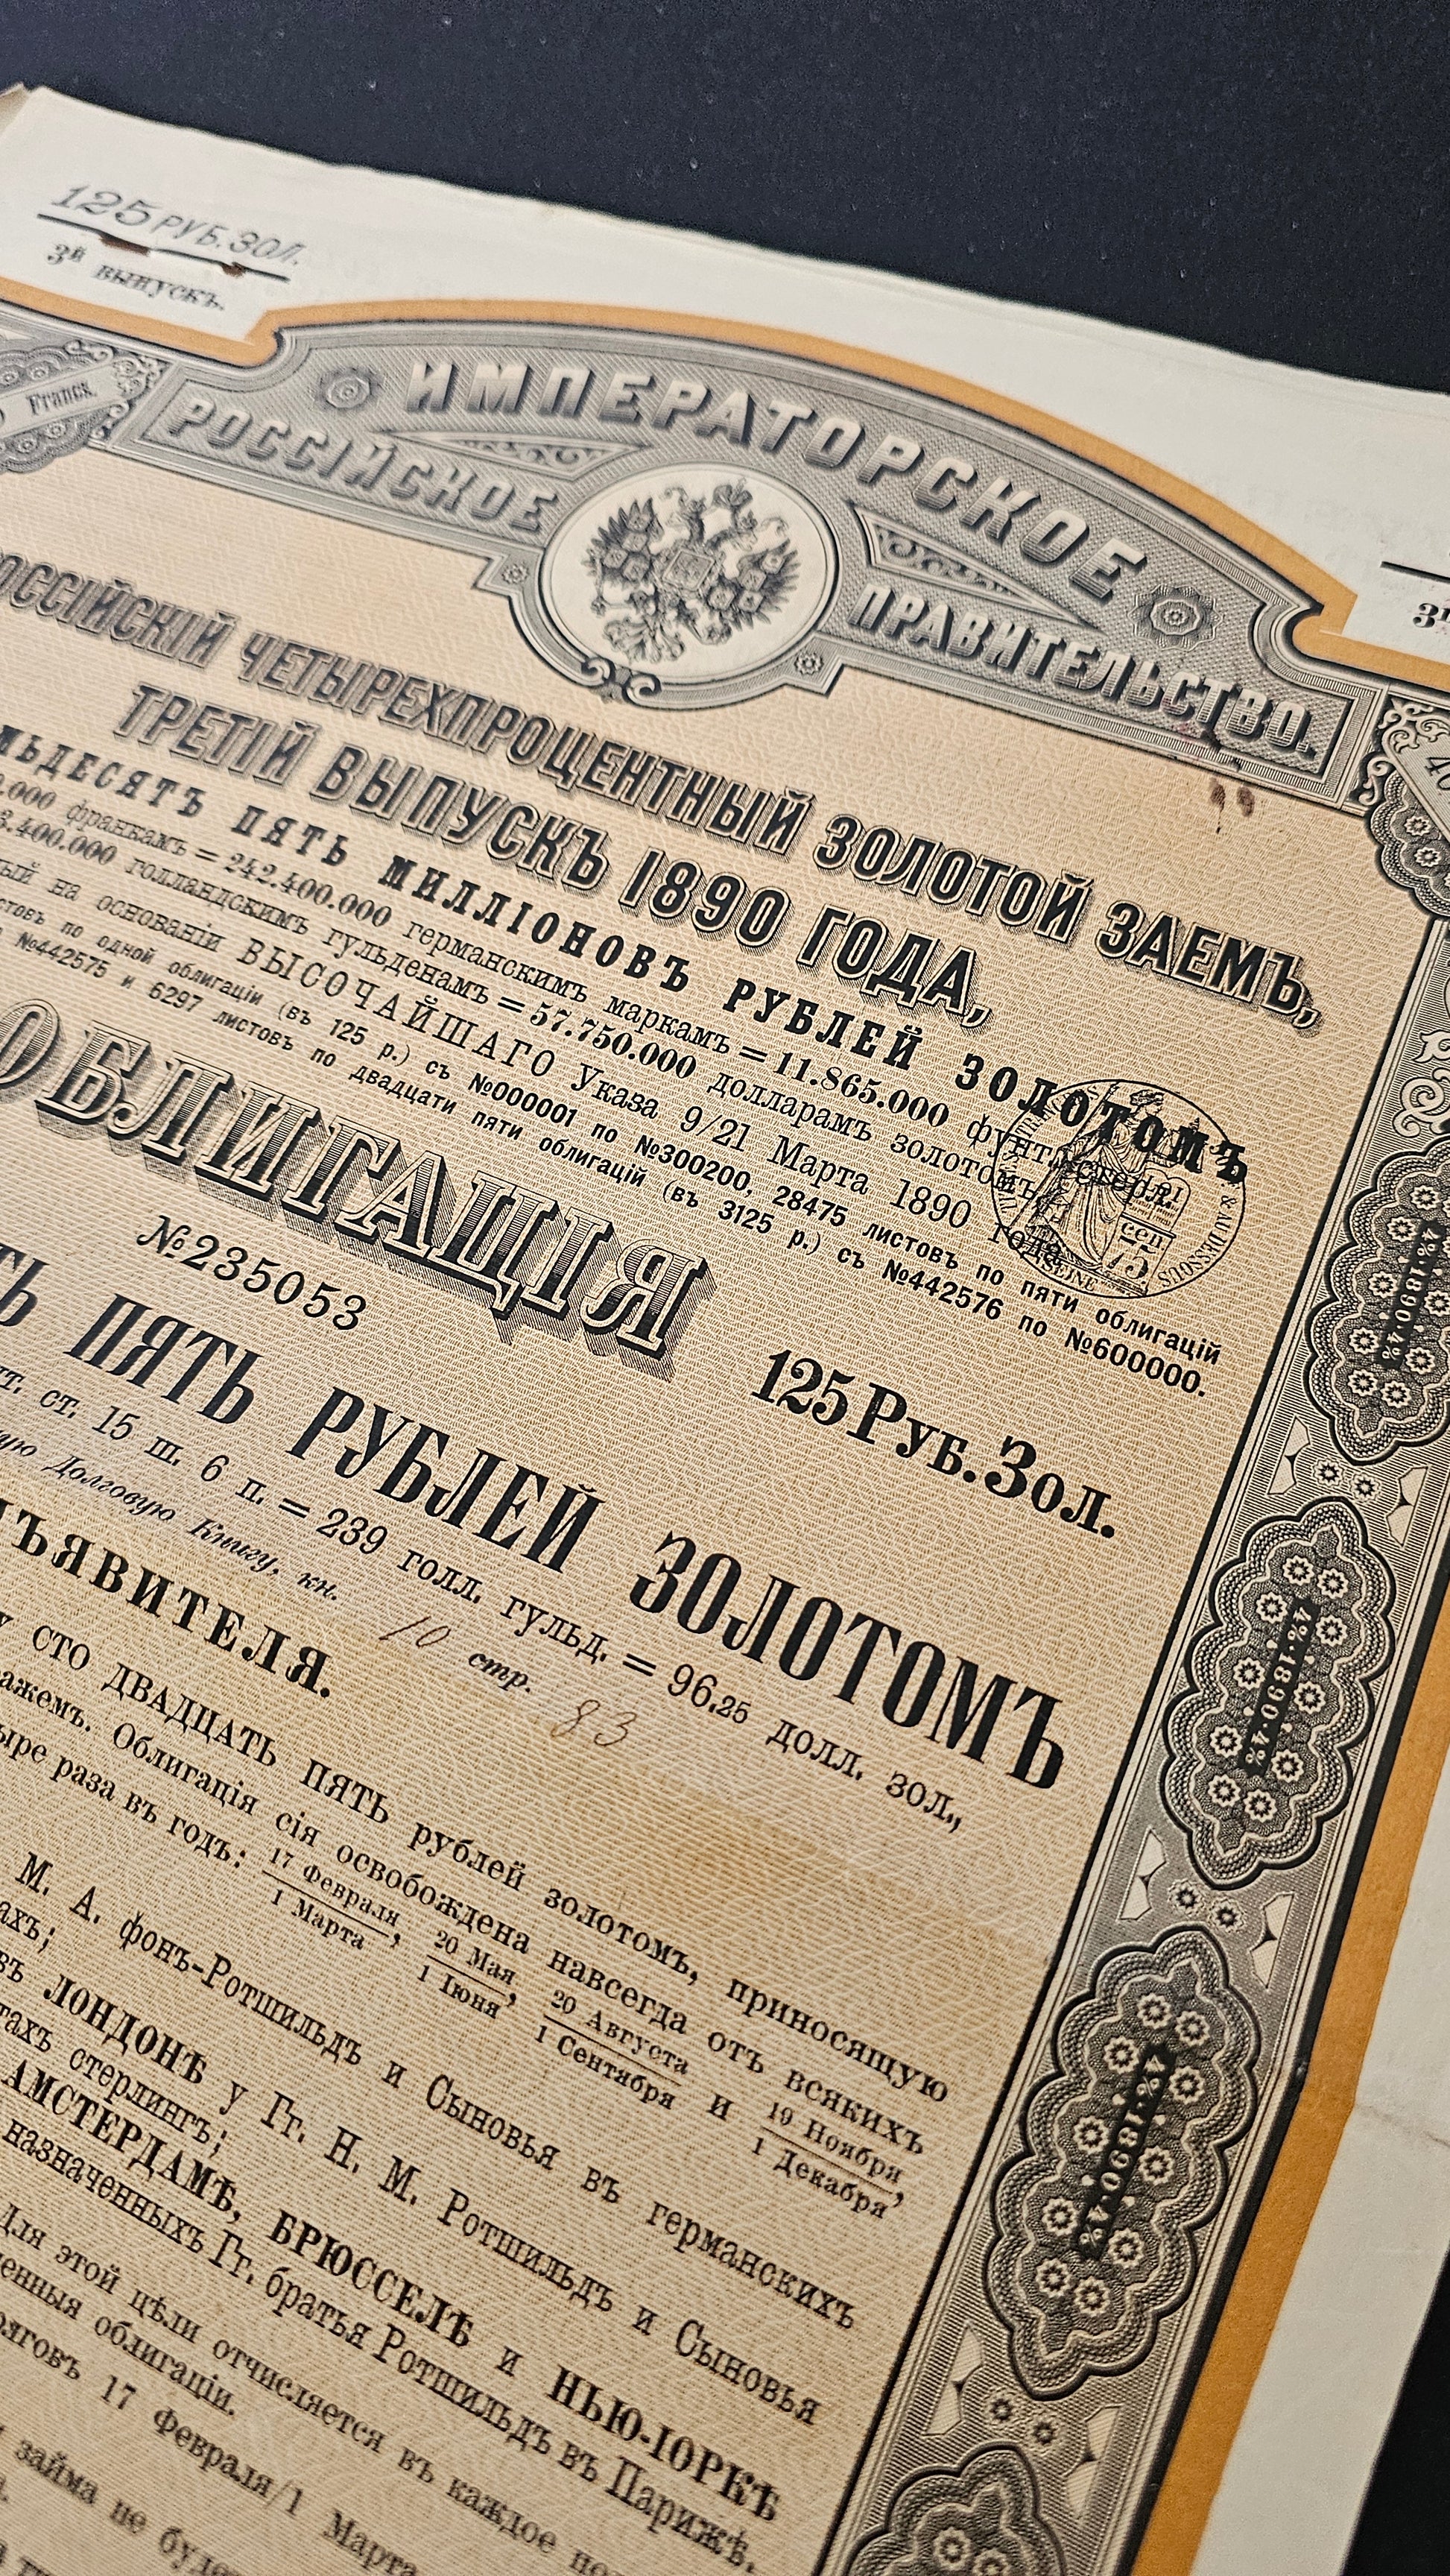 125 РУБ. ЗОЛ.
3й выпускъ.
Francs.
ИМПЕРАТОРСКОЕ
РОССІЙСКОЕ ПРАВИТЕЛЬСТВО.
РОССІЙСКІЙ ЧЕТЫРЕХПРОЦЕНТНЫЙ ЗОЛОТОЙ ЗАЕМЪ,
ТРЕТІЙ ВЫПУСКЪ 1890 ГОДА,
ПЯТЬ МИЛЛІОНОВЪ РУБЛЕЙ ЗОЛОТОМЪ
франкамъ = 242.400.000 германскимъ маркамъ = 11.865.000 фунт. стерл.
голландскимъ гульденамъ = 57.750.000 долларамъ золотомъ,
на основаніи ВЫСОЧАЙШАГО Указа 9/21 Марта 1890 года
по одной облигаціи (въ 125 р.) съ №000001 по №300200, 28475 листовъ по пяти облигацій
№442575 и 6297 листовъ по двадцати пяти облигацій (въ 3125 р.) съ №442576 по №600000.
& AU DESSUS
75
SEINE
ОБЛИГАЦІЯ
№235053
125 Руб. Зол.
ПЯТЬ РУБЛЕЙ ЗОЛОТОМЪ
ст. 15 ш. 6 п. = 239 голл. гульд. = 96.25 долл. зол.,
Долговую Книгу, кн. 10 стр. 83
СТО ДВАДЦАТЬ ПЯТЬ рублей золотомъ, приносящую
Облигація сія освобождена навсегда отъ всякихъ
раза въ годъ: 17 Февраля / 1 Марта, 20 Мая / 1 Іюня, 20 Августа / 1 Сентября и 19 Ноября / 1 Декабря,
М. А. фонъ-Ротшильдъ и Сыновья въ германскихъ
въ ЛОНДОНѢ у Гг. Н. М. Ротшильдъ и Сыновья
стерлингъ;
АМСТЕРДАМѢ, БРЮССЕЛѢ и НЬЮ-ІОРКѢ
назначенныхъ Гг. братья Ротшильдъ въ Парижѣ.
Для этой цѣли отчисляется въ каждое
облигаціи.
17 Февраля/1 Марта
займа не
4%·1890·4%
4%·1890·4%
4%·1890·4%